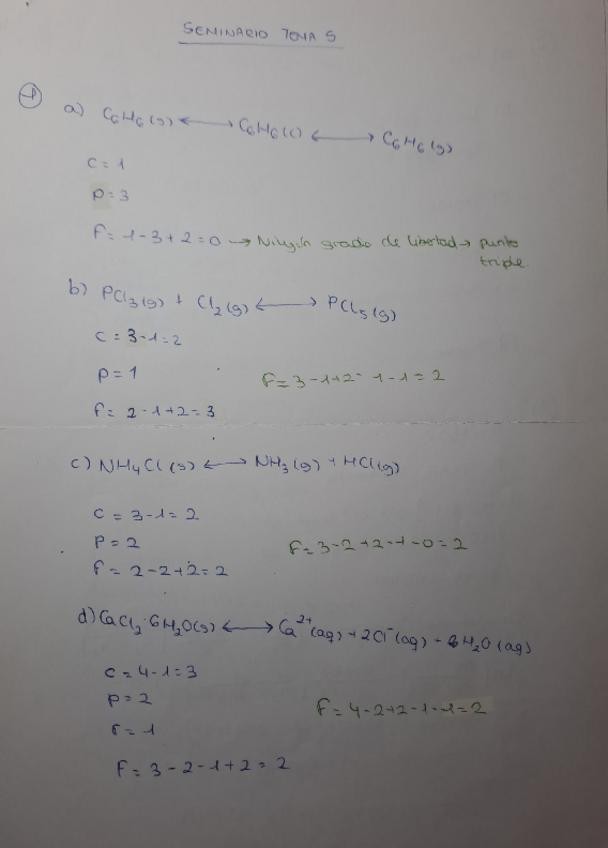 SEMINARIO TEMA 5
1
a) C6H6(s) ⟷ C6H6(l) ⟷ C6H6(g)
C = 1
P = 3
F = 1-3+2 = 0 → Ningún grado de libertad → punto
triple.
b) PCl3(g) + Cl2(g) ⟷ PCl5(g)
C = 3-1 = 2
P = 1
F = 3-1+2-1-1 = 2
F = 2-1+2 = 3
c) NH4Cl(s) ⟷ NH3(g) + HCl(g)
C = 3-1 = 2
P = 2
F = 3-2+2-1-0 = 2
F = 2-2+2 = 2
d) CaCl2·6H2O(s) ⟷ Ca2+(aq) + 2Cl-(aq) + 6H2O(aq)
C = 4-1 = 3
P = 2
F = 4-2+2-1-1 = 2
r = 1
F = 3-2-1+2 = 2